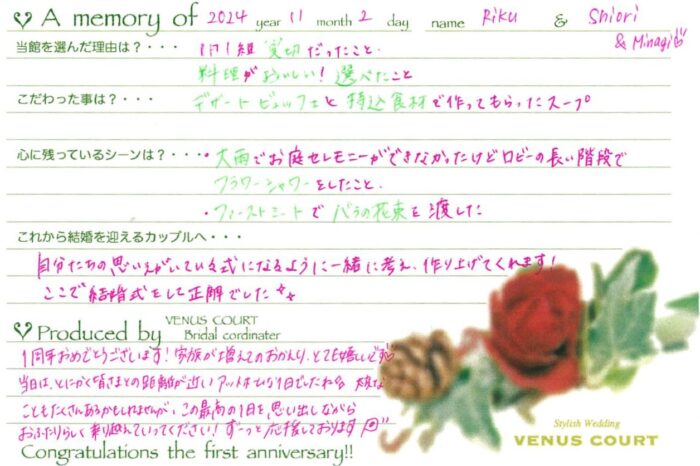 A memory of 2024 year 11 month 2 day name Riku & Shiori
& Minagi
当館を選んだ理由は？・・・ 1日1組 貸切だったこと、
料理がおいしい！選べたこと
こだわった事は？・・・ デザートビュッフェと持込食材で作ってもらったスープ
心に残っているシーンは？・・・・大雨でお庭セレモニーができなかったけどロビーの長い階段で
フラワーシャワーをしたこと、
・ファーストミートでバラの花束を渡した
これから結婚を迎えるカップルへ・・・
自分たちの思いえがいている式になるように一緒に考え、作り上げてくれます！
ここで結婚式をして正解でした
Produced by VENUS COURT
Bridal cordinater
1周年おめでとうございます！家族が増えてのおかえり、とても嬉しいです
当日は、とにかく皆さまとの距離が近いアットホームな1日でしたね 大変な
こともたくさんあるかもしれませんが、この最高の1日を思い出しながら
おふたりらしく乗り越えていってください！ずーっと応援しております
Congratulations the first anniversary!!
Stylish Wedding
VENUS COURT